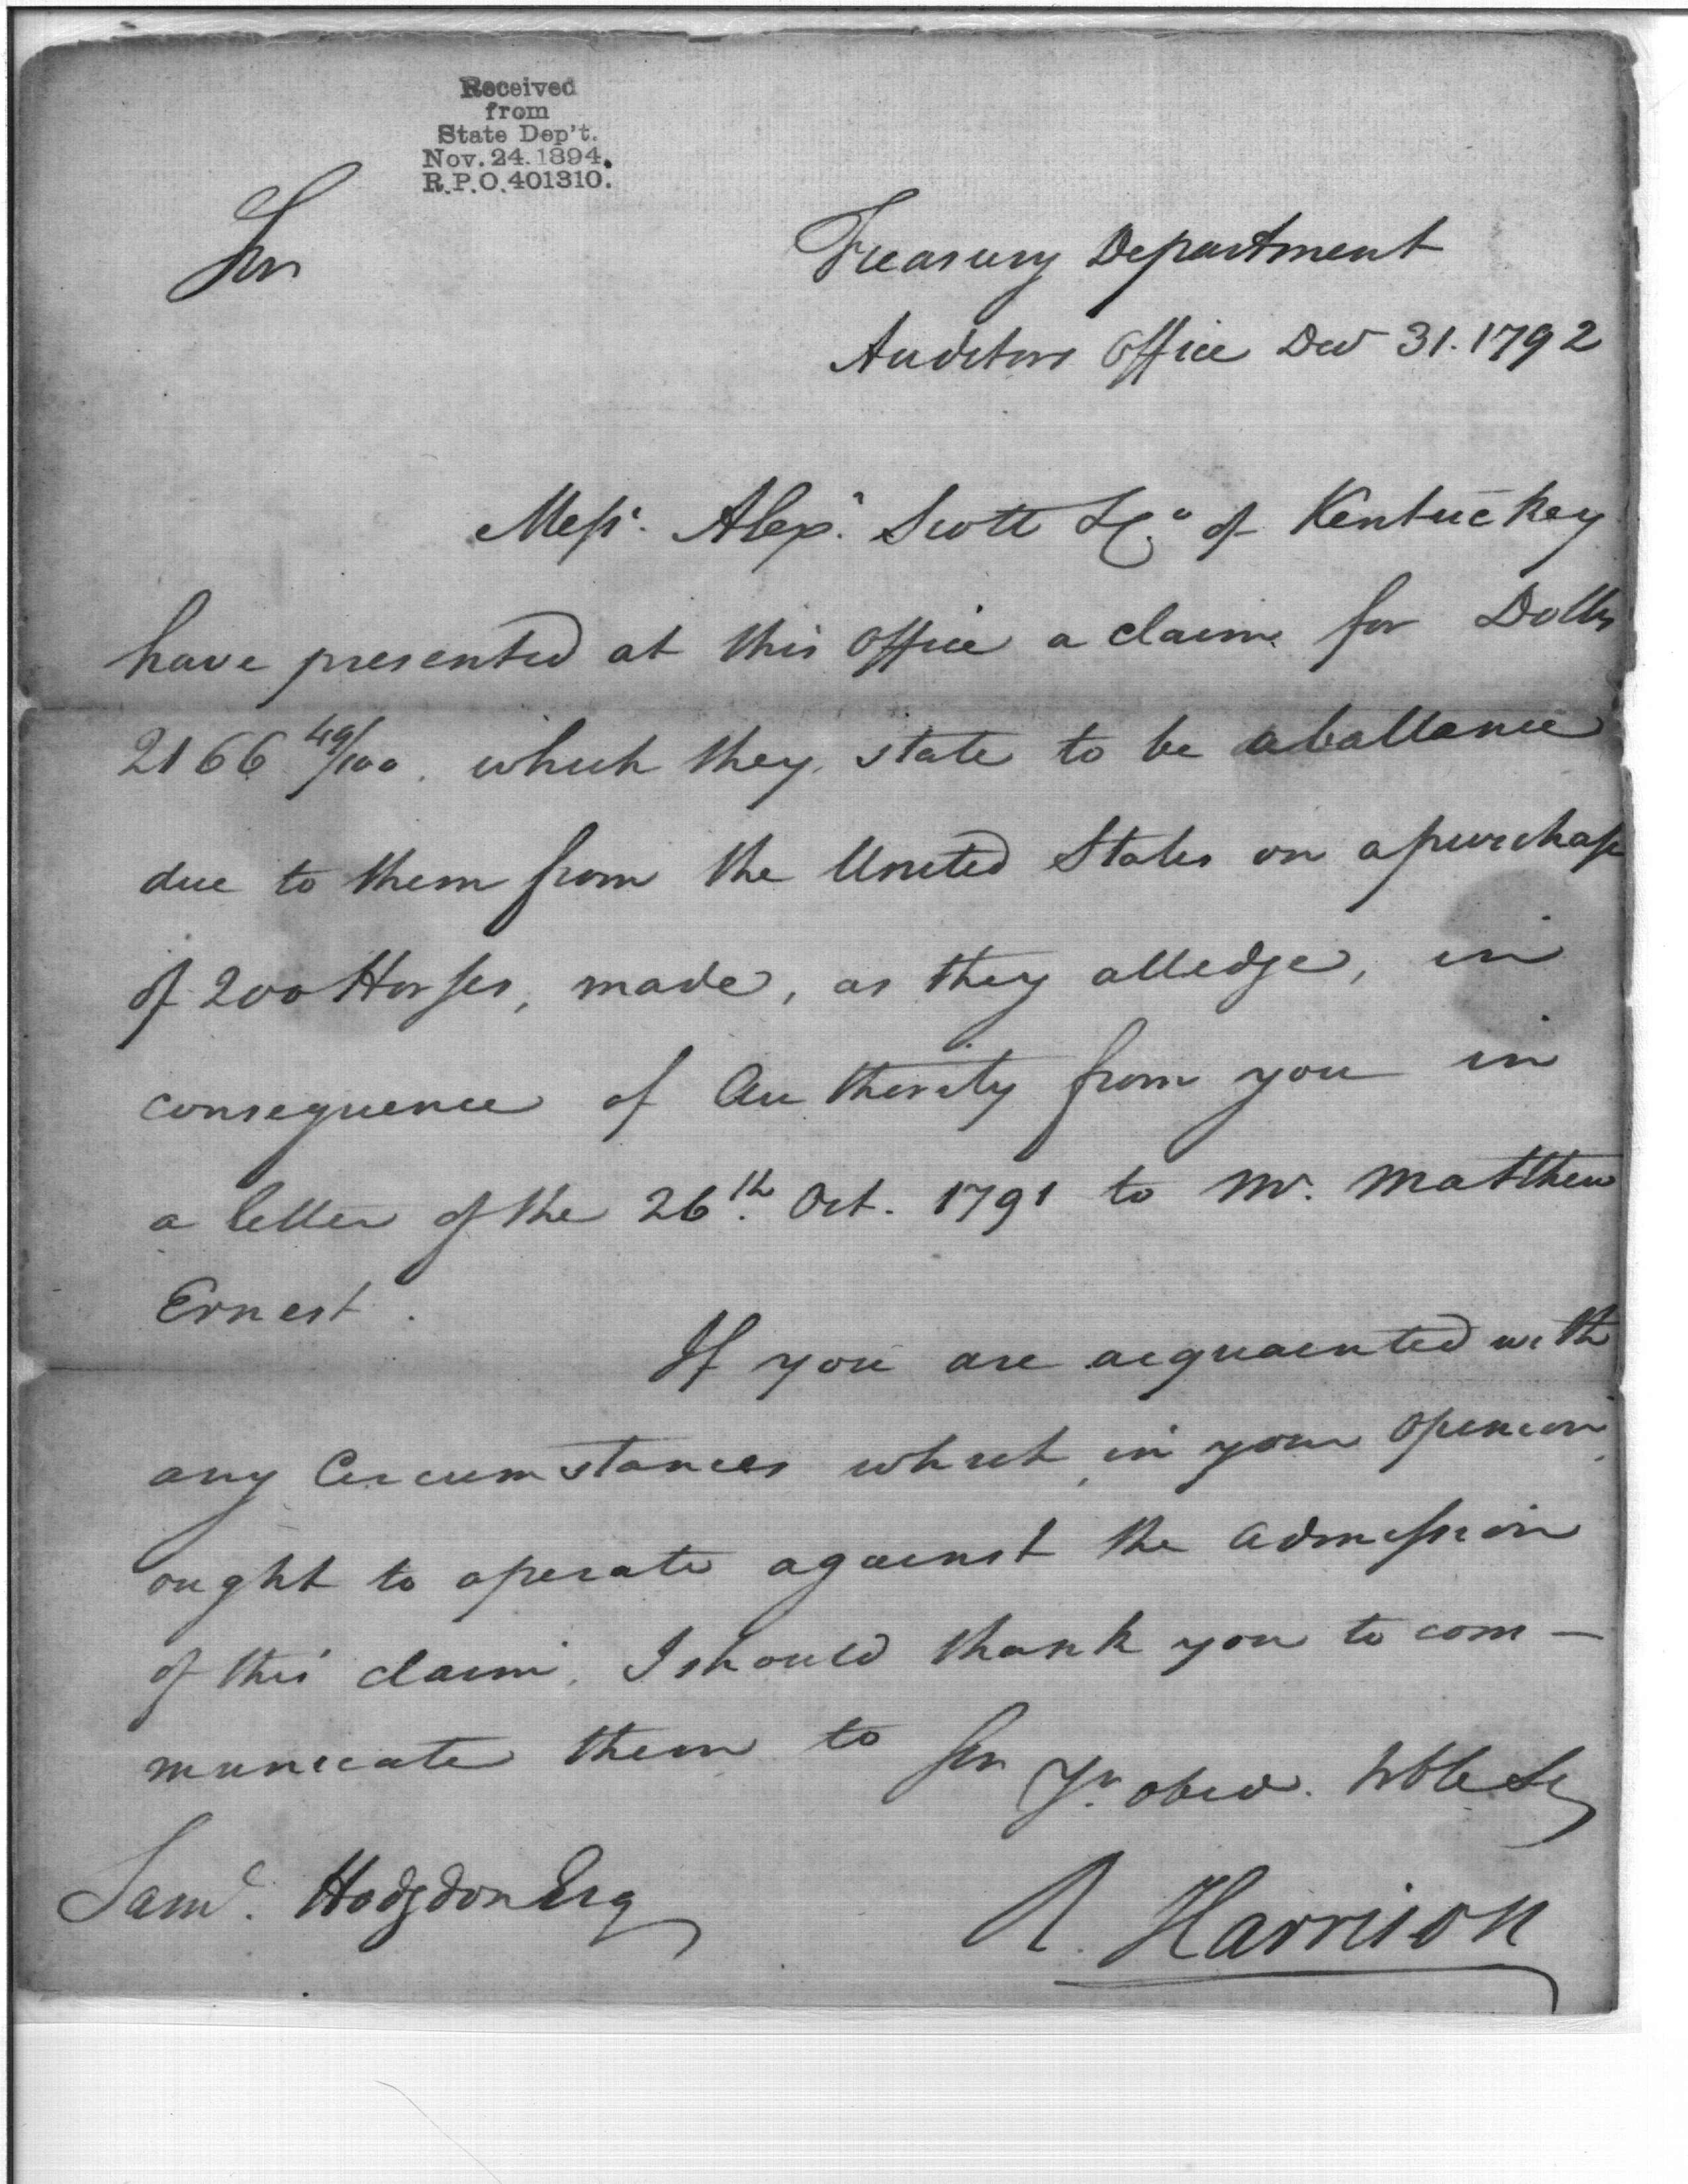 Received
from
State Dep't.
Nov. 24. 1894.
R.P.O. 401310.
Sir
Treasury Department
Auditors Office Decr 31. 1792
Messrs. Alexr. Scott & Co. of Kentuckey
have presented at this Office a claim for Dollrs
2166 49/100. which they state to be a ballance
due to them from the United States on a purchase
of 200 Horses, made, as they alledge, in
consequence of Authority from you in
a letter of the 26th. Oct. 1791 to Mr. Matthew
Ernest.
If you are acquainted with
any Circumstances which, in your Opinion,
ought to operate against the admission
of this claim, I should thank you to com-
municate them to Sir Yr. obed. hble St
Saml. Hodgdon Esq
R. Harrison